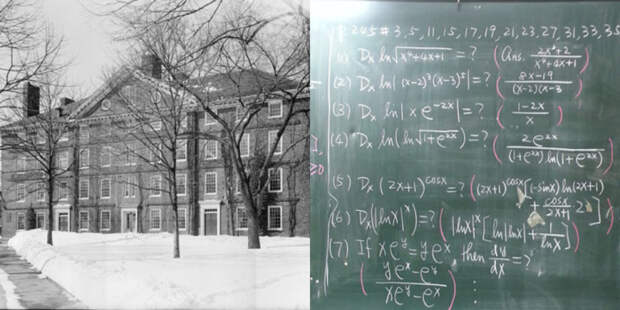 P. 245 # 3, 5, 11, 15, 17, 19, 21, 23, 27, 31, 33, 35
(1) Dx ln√(x⁴+4x+1) = ? (Ans. (2x³+2)/(x⁴+4x+1))
(2) Dx ln| (x-2)³(x-3)⁵| = ? ((8x-19)/((x-2)(x-3)
(3) Dx ln| x e^(-2x)| = ? ((1-2x)/x)
(4) Dx ln( ln√(1+e^(2x))) = ? (2e^(2x)/((1+e^(2x)) ln(1+e^(2x))))
(5) Dx (2x+1)^(cosx) = ? ((2x+1)^(cosx)[(-sinx) ln(2x+1)
+ cosx/(2x+1) · 2])
(6) Dx(|lnx|^x) = ? (|lnx|^x [ln|lnx| + 1/lnx])
(7) If xe^y = ye^x, then dy/dx = ?
((ye^x - e^y)/(xe^y - e^x))